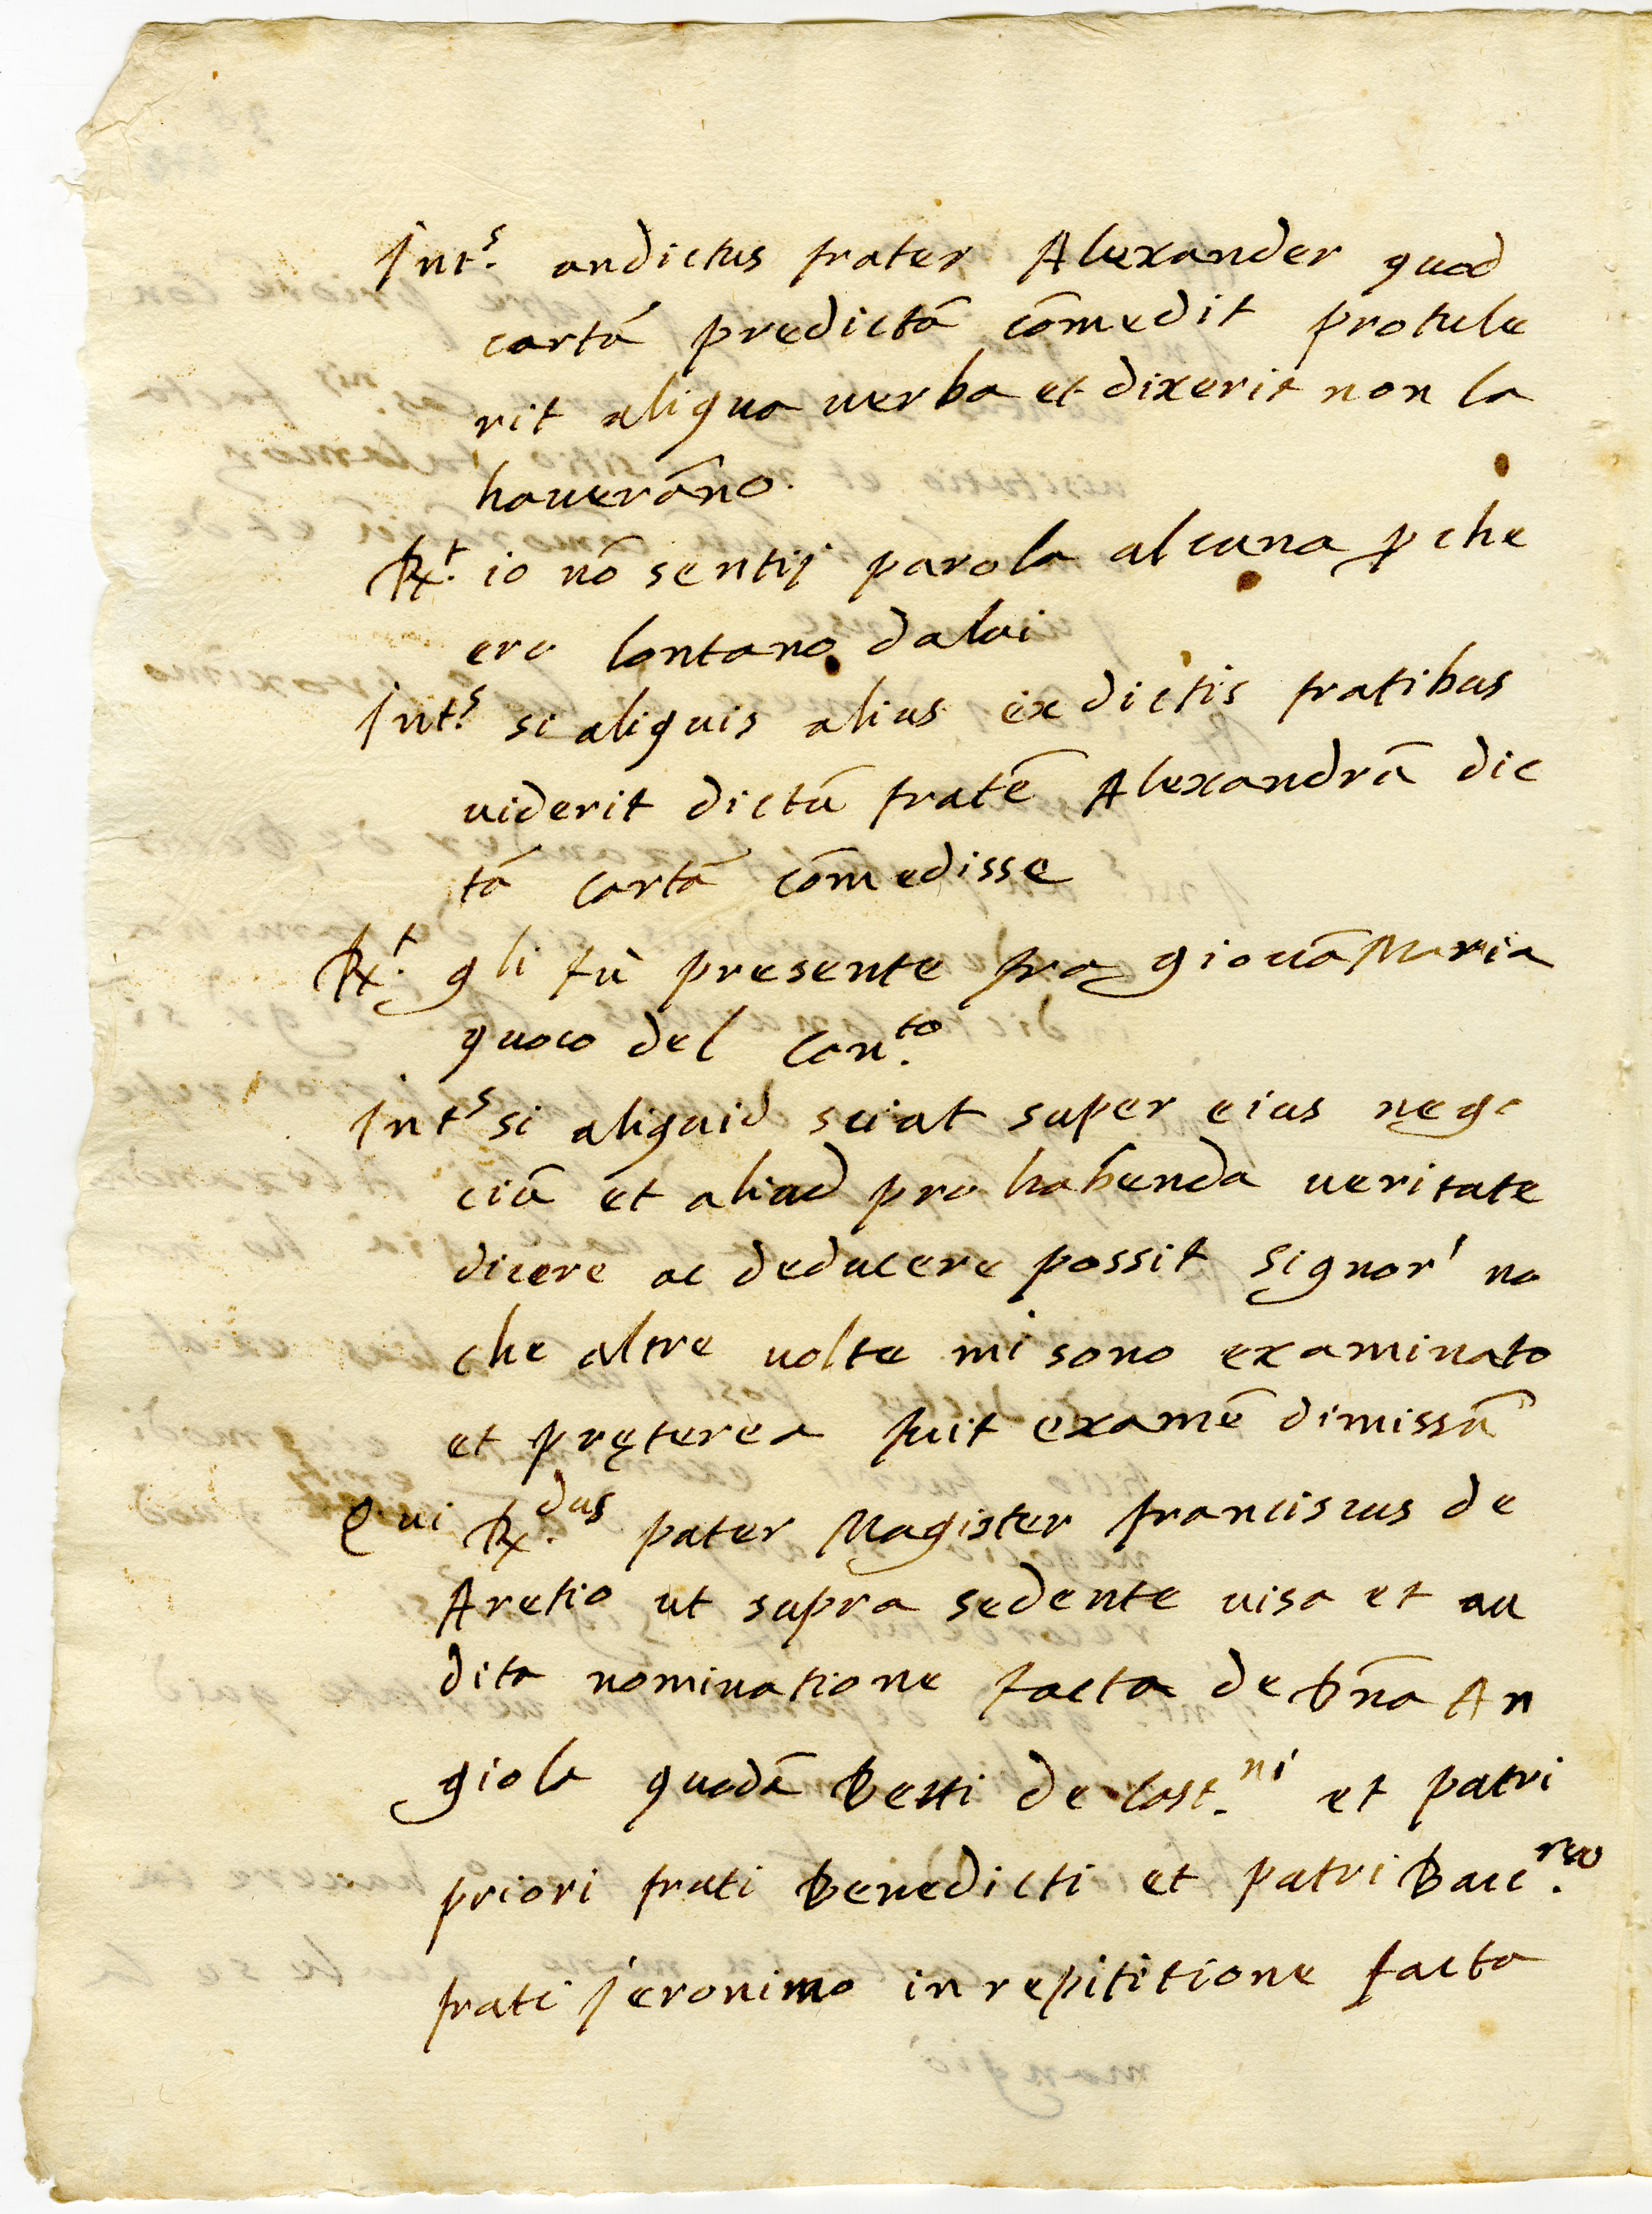 Int.s andictus frater Alexander quod
cartã predictã cõmedit protule
rit aliqua uerba et dixerit non la
hauerãno.
Rx.t io nõ sentij parola alcuna pche
ero lontano dalui
Int.s si aliquis alius ex dictis fratibus
uiderit dictũ fratẽ Alexandrũ dic
tã cartã cõmedisse
Rx.t gli fù presente fra giouãMaria
quoco del Con.to
Int.s si aliquid sciat super eius nego
ciũ et aliud pro habenda ueritate
dicere ac deducere possit signor' no
che altre uolte mi sono examinato
et pręterea fuit examẽ dimissũ
Qui Rx.dus pater Magister franciscus de
Aretio ut supra sedente uisa et au
dita nominatione facta de bña An
giola quodã Betti de Cast.ni et patri
priori frati Benedicti et patri Bacc.reo
frati Jeronimo in repititione facta